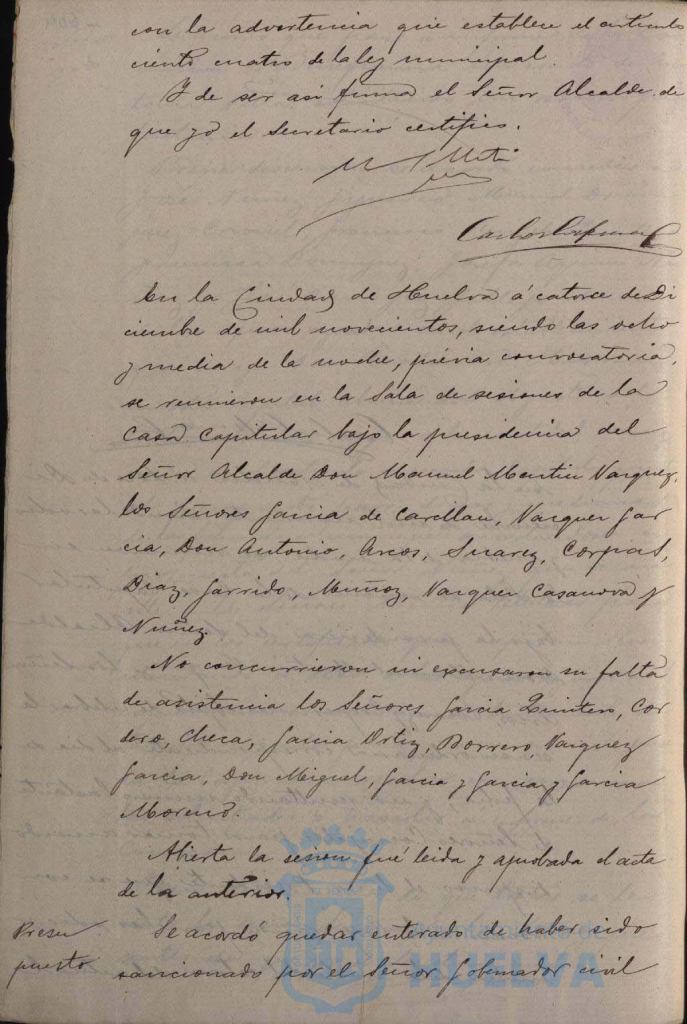 con la advertencia que establece el articulo
ciento cuatro de la ley municipal.
Y de ser asi firma el Señor Alcalde de
que yo el Secretario certifico.
En la Ciudad de Huelva á catorce de Di
ciembre de mil novecientos, siendo las ocho
y media de la noche, prévia convocatoria,
se reunieron en la Sala de sesiones de la
Casa Capitular bajo la presidencia del
Señor Alcalde Don Manuel Martin Vazquez,
los Señores Garcia de Carellan, Vazquez Gar
cia, Don Antonio, Arcos, Suarez, Corpas,
Diaz, Garrido, Muñoz, Vazquez Casanova y
Nuñez.
No concurrieron ni excusaron su falta
de asistencia los Señores Garcia Quintero, Cor
dero, Checa, Garcia Ortiz, Borrero, Vazquez
Garcia, Don Miguel, Garcia y Garcia y Garcia
Moreno.
Abierta la sesion fué leida y aprobada el acta
de la anterior.
Presu
puesto
Se acordó quedar enterado de haber sido
sancionado por el Señor Gobernador civil
Ayuntamiento de
HUELVA